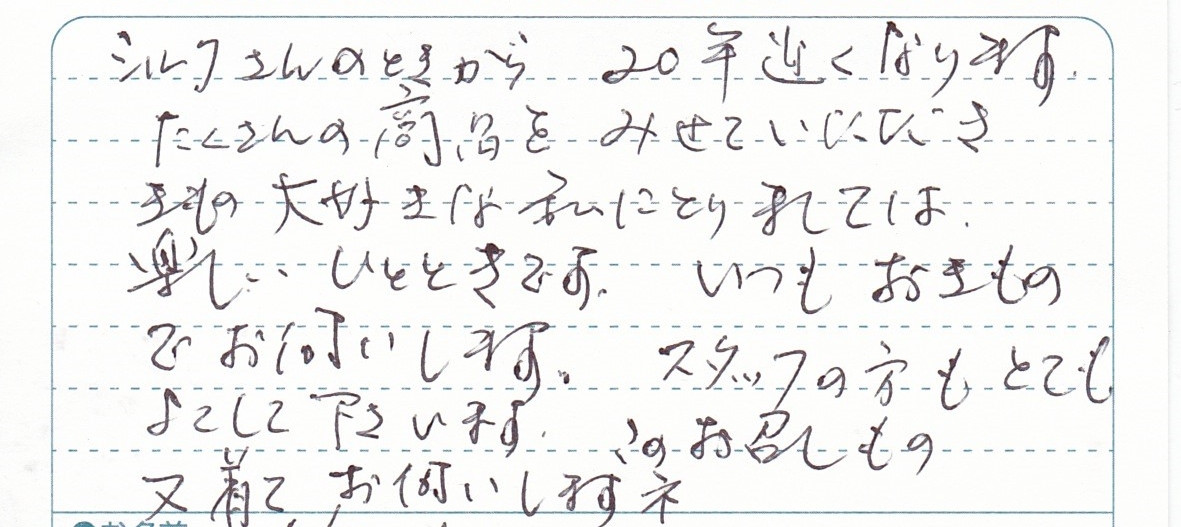 シルクさんのときから 20年近くなります.
たくさんの商品を みせていただき
きもの大好きな私にとりましては.
楽しい ひとときです. いつも おきもの
で お伺いします. スタッフの方も とても
よくして下さいます. このお召しもの
又着て お伺いしますネ